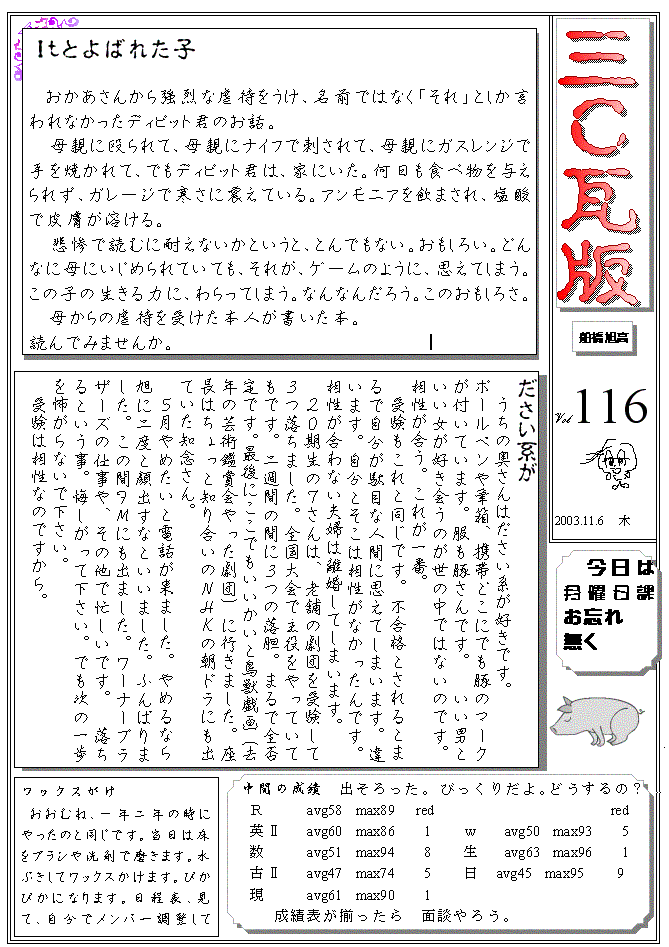 三C瓦版
船橋旭高
Vol 116
2003.11.6 木
今日は
月曜日課
お忘れ
無く
Itとよばれた子
おかあさんから強烈な虐待をうけ、名前ではなく「それ」としか言
われなかったディビット君のお話。
母親に殴られて、母親にナイフで刺されて、母親にガスレンジで
手を焼かれて、でもディビット君は、家にいた。何日も食べ物を与え
られず、ガレージで寒さに震えている。アンモニアを飲まされ、塩酸
で皮膚が溶ける。
悲惨で読むに耐えないかというと、とんでもない。おもしろい。どん
なに母にいじめられていても、それが、ゲームのように、思えてしまう。
この子の生きる力に、わらってしまう。なんなんだろう。このおもしろさ。
母からの虐待を受けた本人が書いた本。
読んでみませんか。
ださい系が
うちの奥さんはださい系が好きです。
ボールペンや筆箱、携帯どこにでも豚のマーク
が付いています。服も豚さんです。 いい男と
いい女が好き会うのが世の中ではないのです。
相性が会う。これが一番。
受験もこれと同じです。不合格とされるとま
るで自分が駄目な人間に思えてしまいます。違
います。自分とそこは相性がなかったんです。
相性が合わない夫婦は離婚してしまいます。
20期生のTさんは、老舗の劇団を受験して
3つ落ちました。全国大会で主役をやっていて
もです。二週間の間に3つの落胆。まるで全否
定です。最後にここでもいいかいと鳥獣戯画(去
年の芸術鑑賞会やった劇団)に行きました。座
長はちょっと知り合いのNHKの朝ドラにも出
ていた知念さん。
5月やめたいと電話が来ました。やめるなら
旭に二度と顔出すなといいました。ふんばりま
した。この間TMにも出ました。ワーナーブラ
ザーズの仕事や、その他で忙しいです。 落ち
るという事。悔しがって下さい。でも次の一歩
を怖がらないで下さい。
受験は相性なのですから。
ワックスがけ
おおむね、一年二年の時に
やったのと同じです。当日は床
をブラシや洗剤で磨きます。水
ぶきしてワックスかけます。ぴか
ぴかになります。日程表、見
て、自分でメンバー調整して
中間の成績 出そろった。びっくりだよ。どうするの?
R avg58 max89 red red
英Ⅱ avg60 max86 1 w avg50 max93 5
数 avg51 max94 8 生 avg63 max96 1
古Ⅱ avg47 max74 5 日 avg45 max95 9
現 avg61 max90 1
成績表が揃ったら 面談やろう。